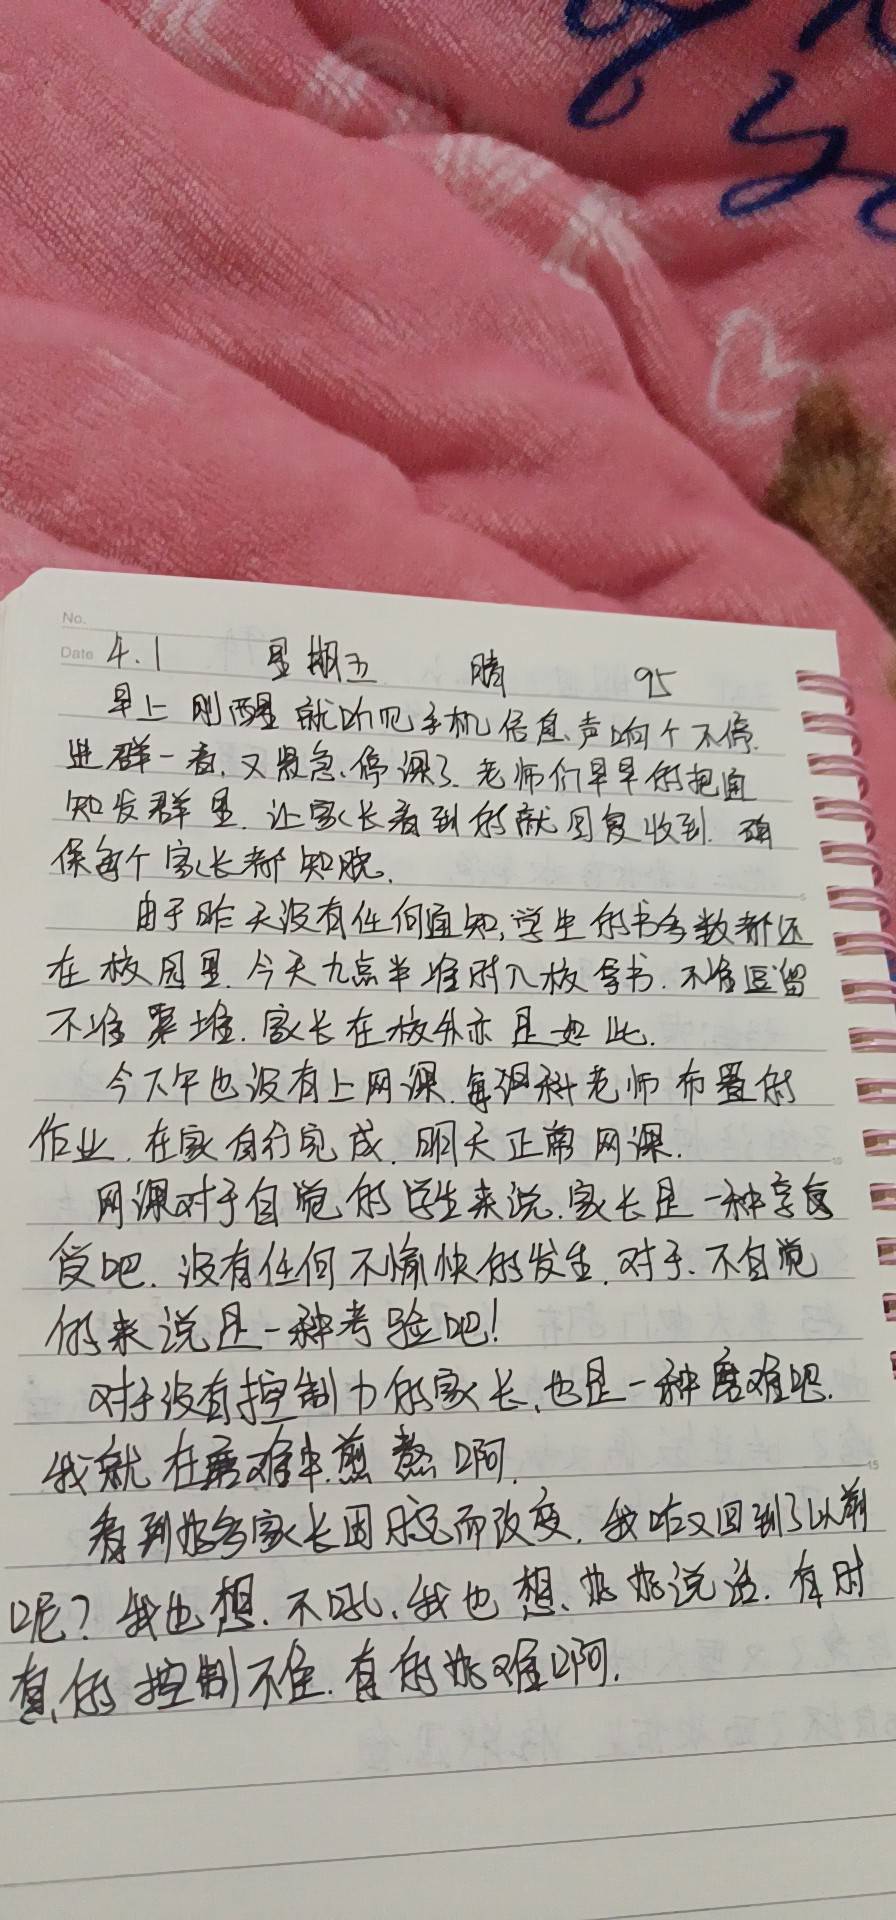 No.
Date 4.1 星期五 晴 95
早上刚醒就听见手机信息声响个不停.
进群一看,又紧急,停课了.老师们早早的把通
知发群里.让家长看到的就回复收到.确
保每个家长都知晓.
由于昨天没有任何通知,学生的书多数都还
在校园里.今天九点半准时入校拿书.不准逗留
不准聚堆.家长在校外亦是如此.
今下午也没有上网课.每课科老师布置的
作业.在家自行完成.明天正常网课.
网课对于自觉的学生来说.家长是一种享
受吧.没有任何不愉快的发生.对于.不自觉
的来说是一种考验吧!
对于没有控制力的家长,也是一种磨难吧.
我就在磨难中.煎熬啊.
看到好多家长因 而改变.我咋又回到了以前
呢?我也想.不吼.我也想.好好说话.有时
真的控制不住.真的好难啊.
15